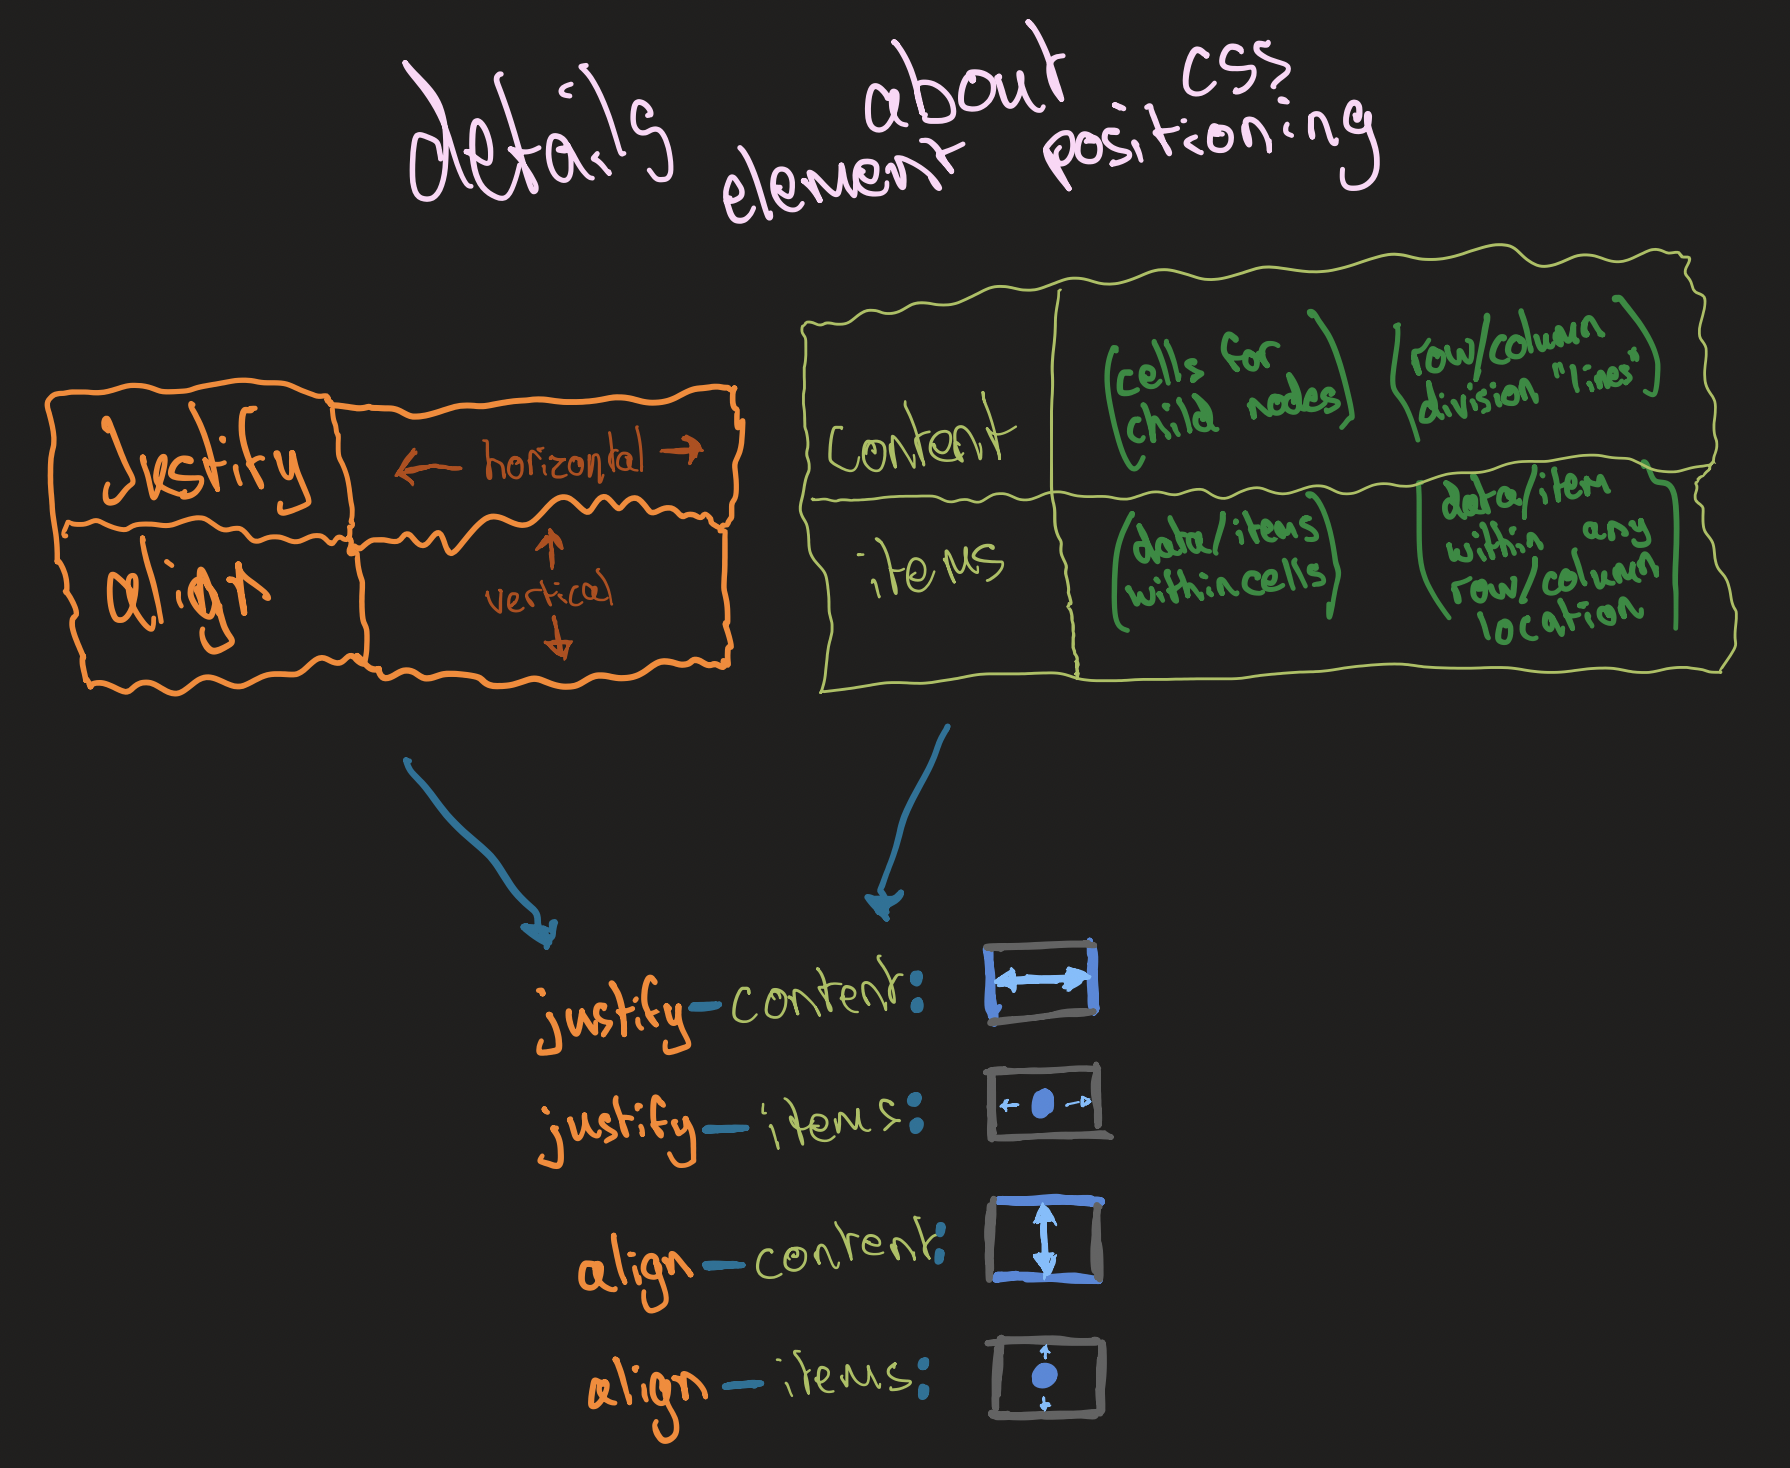 details about css
element positioning
Justify
← horizontal →
align
vertical
content
(cells for
child nodes)
(row/column
division "lines")
items
(data/items
within cells)
(data/item
within any
row/column
location)
justify-content:
justify-items:
align-content:
align-items: